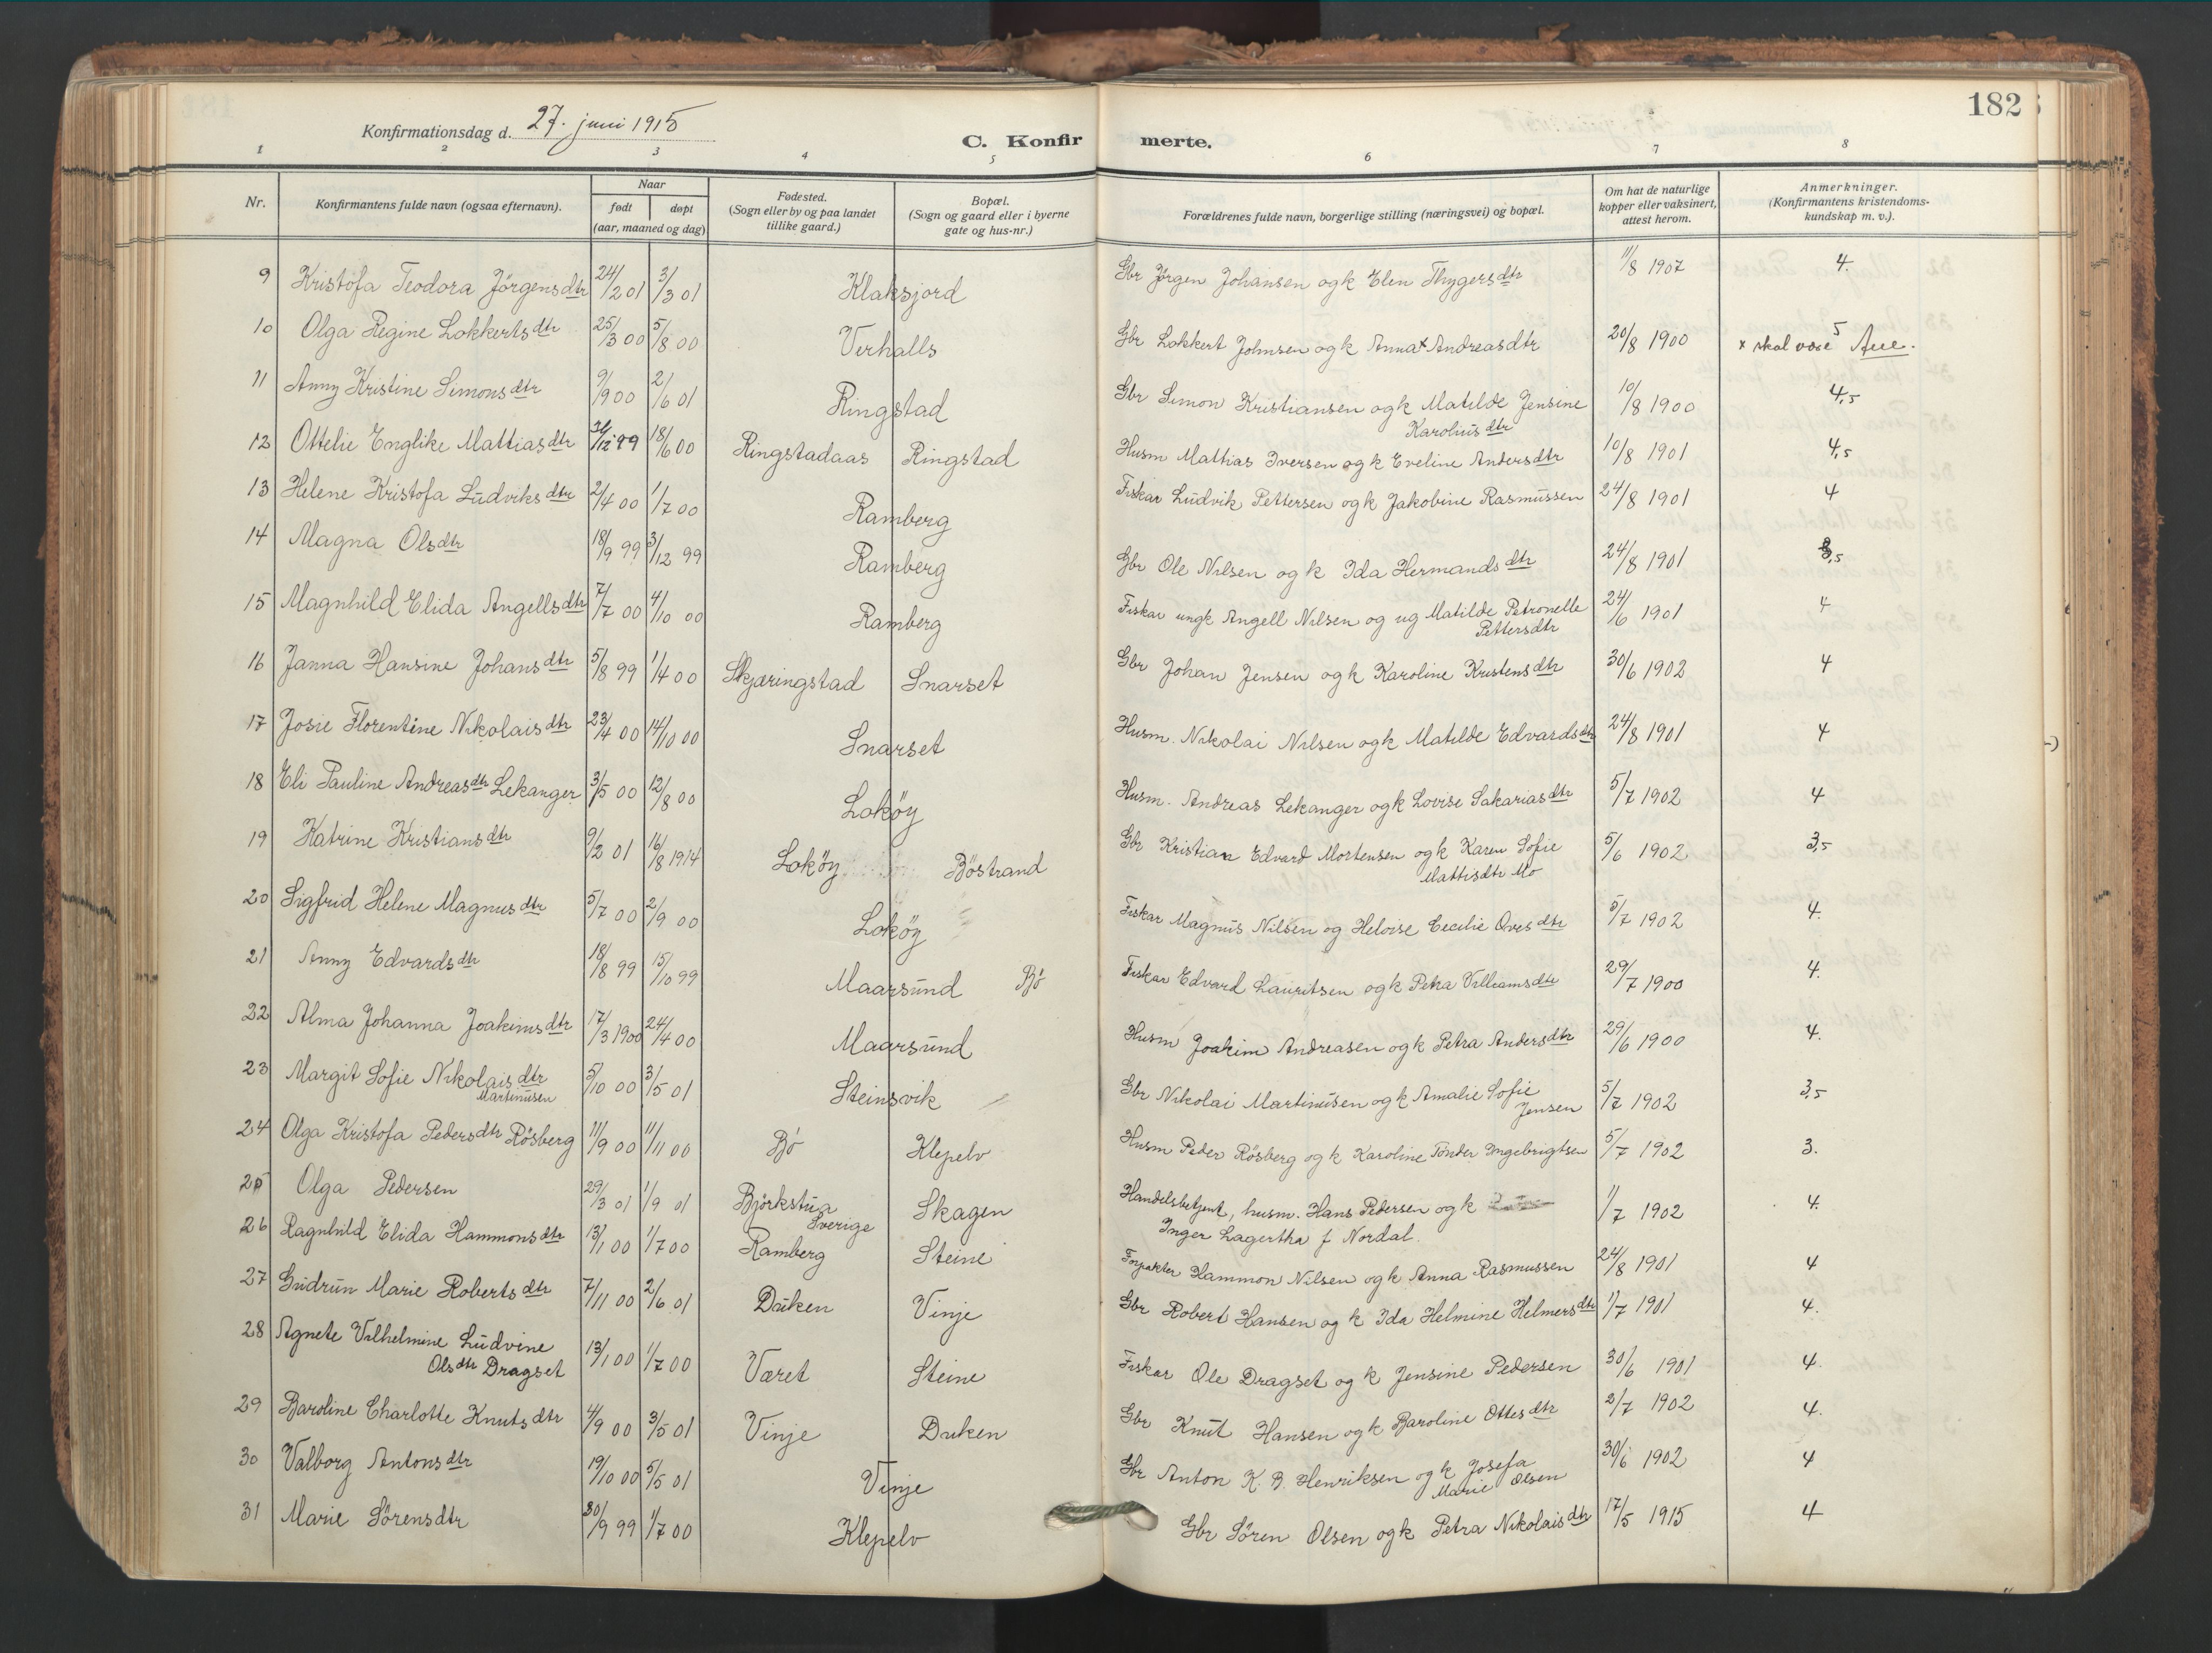 182
Konfirmationsdag d. 27. juni 1915
C. Konfir merte.
1 2 3 4 5 6 7 8
Nr.
Konfirmantens fulde navn (ogsaa efternavn).
Naar
født døpt
(aar, maaned og dag)
Fødested.
(Sogn eller by og paa landet
tillike gaard.)
Bopæl.
(Sogn og gaard eller i byerne
gate og hus-nr.)
Forældrenes fulde navn, borgerlige stilling (næringsvei) og bopæl.
Om hat de naturlige
kopper eller vaksinert,
attest herom.
Anmerkninger.
(Konfirmantens kristendoms-
kundskap m. v.).
9 Kristofa Teodora Jörgensdtr 24/2 01 3/3 01 Klaksjord Gbr Jörgen Johansen og k Elen Thygersdtr 11/8 1907 4.
10 Olga Regine Lokkertsdtr 25/3 00 5/8 00 Verhalls Gbr Lokkert Johnsen og k Anna x Andreasdtr 20/8 1900 5
x skal være Ane.
11 Anny Kristine Simonsdtr 9/9 00 2/6 01 Ringstad Gbr Simon Kristiansen og k Matilde Jensine 10/8 1900 4,5
Karoliusdtr
12 Ottelie Englike Mattiasdtr /12 99 18/6 00 Ringstadaas Ringstad Husm Mattias Iversen og k Eveline Andersdtr 10/8 1901 4,5
13 Helene Kristofa Ludviksdtr 2/4 00 1/7 00 Ramberg Fiskar Ludvik Pettersen og k Jakobine Rasmussen 24/8 1901 4
14 Magna Olsdtr 18/9 99 3/12 99 Ramberg Gbr Ole Nilsen og k Ida Hermandsdtr 24/8 1901 3,5
15 Magnhild Elida Angellsdtr 7/7 00 4/10 00 Ramberg Fiskar ungk Angell Nilsen og ug Matilde Petronelle 24/6 1901 4
Pettersdtr
16 Janna Hansine Johansdtr 5/8 99 1/4 00 Skjæringstad Snarset Gbr Johan Jensen og k Karoline Kristensdtr 30/6 1902 4
17 Josie Florentine Nikolaisdtr 23/4 00 14/10 00 Snarset Husm. Nikolai Nilsen og k Matilde Edvardsdtr 24/8 1901 4
18 Eli Pauline Andreasdtr Lekanger 3/5 00 12/8 00 Loköy Husm. Andreas Lekanger og k Lovise Sakariasdtr 5/7 1902 4
19 Katrine Kristiansdtr 9/2 01 16/8 1914 Loköy Böstrand Gbr Kristian Edvard Mortensen og k Karen Sofie 5/6 1902 3,5
Mattisdtr Mo
20 Sigfrid Helene Magnusdtr 5/7 00 2/9 00 Loköy Fiskar Magnus Nilsen og Heloise Cecilie Ovesdtr 5/7 1902 4.
21 Anny Edvardsdtr 18/8 99 15/10 99 Maarsund Bö Fiskar Edvard Lauritsen og k Petra Villiamsdtr 29/7 1900 4.
22 Alma Johanna Joakimsdtr 17/3 1900 24/4 00 Maarsund Husm Joakim Andreasen og k Petra Andersdtr 29/6 1900 4.
23 Margit Sofie Nikolaisdtr 5/10 00 3/5 01 Steinsvik Gbr Nikolai Martinusen og k Amalie Sofie 5/7 1902 3,5
Martinusen Jensen
24 Olga Kristofa Pedersdtr Rösberg 11/9 00 11/11 00 Bö Klepelv Husm Peder Rösberg og k Karoline Tönder Ingebrigtsen 5/7 1902 3.
25 Olga Pedersen 29/3 01 1/9 01 Björkstua Skagen Handelsbetjent, husm. Hans Pedersen og k 1/7 1902 4.
Sverige Inger Lagertha f Nordal.
26 Ragnhild Elida Hammonsdtr 13/1 00 1/7 00 Ramberg Steine Forpakter Hammon Nilsen og k Anna Rasmussen 24/8 1901 4
27 Gudrun Marie Robertsdtr 7/11 00 2/6 01 Duken Vinje Gbr Robert Hansen og k Ida Helmine Helmersdtr 1/7 1901 4.
28 Agnete Vilhelmine Ludvine
Olsdtr Dragset 13/1 00 1/7 00 Været Steine Fiskar Ole Dragset og k Jensine Pedersen 30/6 1901 4.
29 Baroline Charlotte Knutsdtr 4/9 00 3/5 01 Vinje Duken Gbr Knut Hansen og k Baroline Ottesdtr 2/7 1902 4.
30 Valborg Antonsdtr 19/10 00 5/5 01 Vinje Gbr Anton K. B. Henriksen og k Josefa 30/6 1902 4
Marie Olsen
31 Marie Sörensdtr 30/9 99 1/7 00 Klepelv Gbr Sören Olsen og k Petra Nikolaisdtr 17/5 1915 4